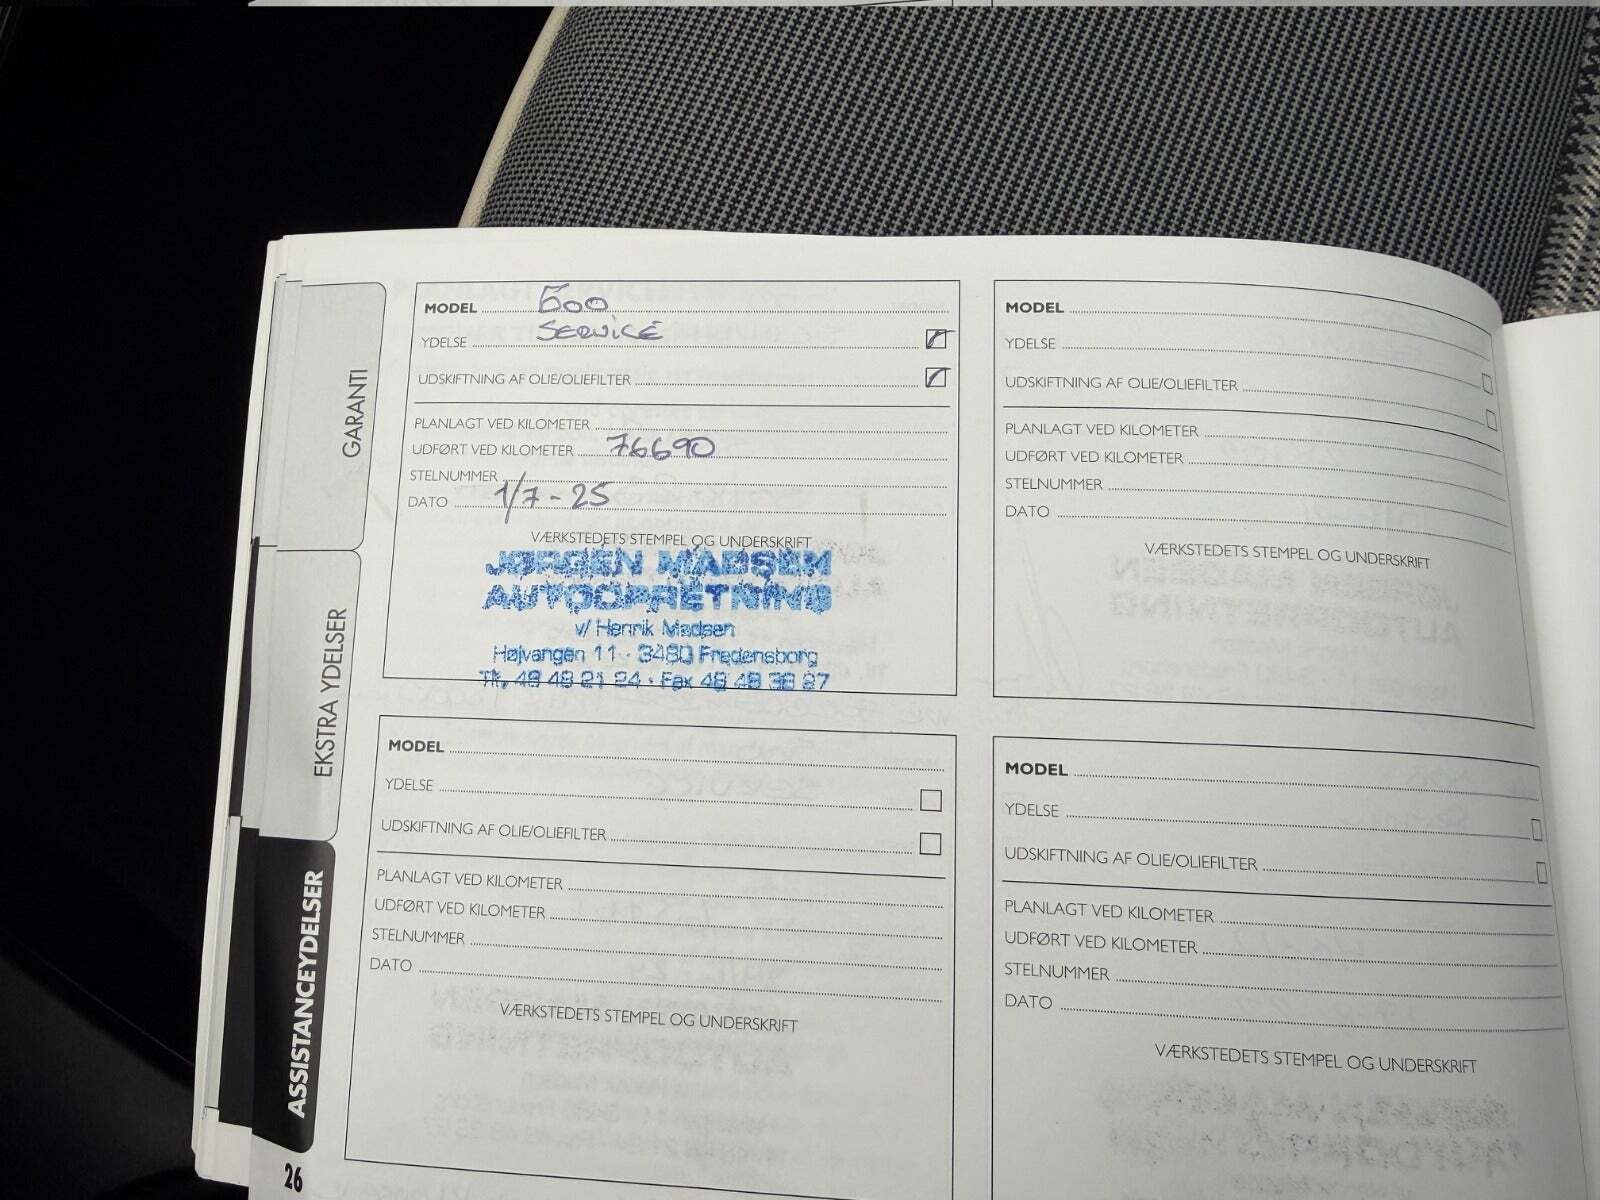 GARANTI
EKSTRA YDELSER
ASSISTANCEYDELSER
26
MODEL 500
YDELSE SERVICE
UDSKIFTNING AF OLIE/OLIEFILTER
PLANLAGT VED KILOMETER
UDFØRT VED KILOMETER 76690
STELNUMMER
DATO 1/7-25
VÆRKSTEDETS STEMPEL OG UNDERSKRIFT
JØRGEN MADSEN
AUTOOPRETNING
v/ Henrik Madsen
Højvangen 11 · 3480 Fredensborg
Tlf. 48 48 21 24 · Fax 48 48 38 27
MODEL
YDELSE
UDSKIFTNING AF OLIE/OLIEFILTER
PLANLAGT VED KILOMETER
UDFØRT VED KILOMETER
STELNUMMER
DATO
VÆRKSTEDETS STEMPEL OG UNDERSKRIFT
MODEL
YDELSE
UDSKIFTNING AF OLIE/OLIEFILTER
PLANLAGT VED KILOMETER
UDFØRT VED KILOMETER
STELNUMMER
DATO
VÆRKSTEDETS STEMPEL OG UNDERSKRIFT
MODEL
YDELSE
UDSKIFTNING AF OLIE/OLIEFILTER
PLANLAGT VED KILOMETER
UDFØRT VED KILOMETER
STELNUMMER
DATO
VÆRKSTEDETS STEMPEL OG UNDERSKRIFT